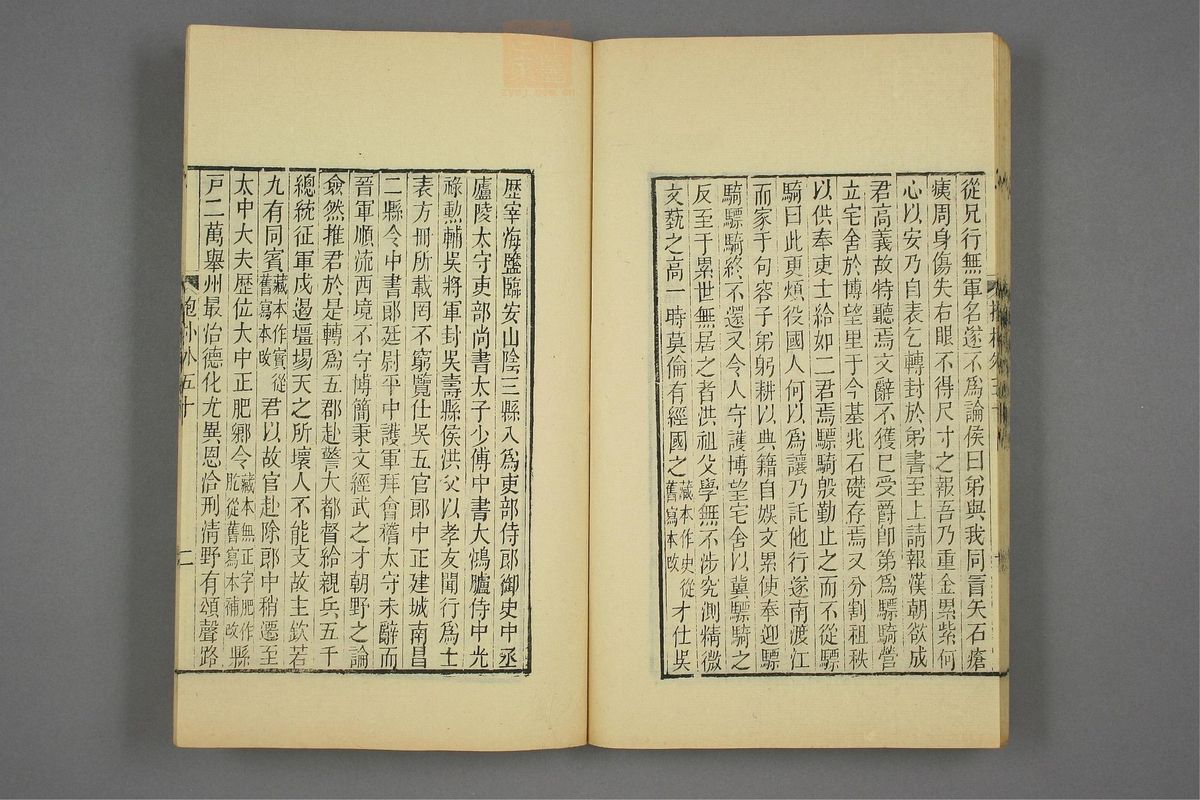 從兄行無軍名遂不爲論侯曰弟與我同冒矢石瘡
痍周身傷失右眼不得尺寸之報吾乃重金累紫何
心以安乃自表乞轉封於弟書至上請報漢朝欲成
君高義故特聽焉文辭不獲已受爵即第爲驃騎營
立宅舍於博望里于今基兆石礎存焉又分割租秩
以供奉吏士給如二君焉驃騎殷勤止之而不從驃
騎曰此更煩役國人何以爲讓乃託他行遂南渡江
而家于句容子弟躬耕以典籍自娛文累使奉迎驃
騎驃騎終不還又令人守護博望宅舍以冀驃騎之
反至于累世無居之者洪祖父學無不涉究測精微
文藝之高一時莫倫有經國之藏本作史從舊寫本改才仕吳
歷宰海鹽臨安山陰三縣入爲吏部侍郎御史中丞
廬陵太守吏部尚書太子少傅中書大鴻臚侍中光
祿勲輔吳將軍封吳壽縣侯洪父以孝友聞行爲士
表方冊所載罔不窮覽仕吳五官郎中正建城南昌
二縣令中書郎廷尉平中護軍拜會稽太守未辭而
晉軍順流西境不守博簡秉文經武之才朝野之論
僉然推君於是轉爲五郡赴警大都督給親兵五千
總統征軍戍遏壃場天之所壞人不能支故主欽若
九有同賓藏本作賓從舊寫本改君以故官赴除郎中稍遷至
太中大夫歷位大中正肥鄉令藏本無正字肥作肶從舊寫本補改縣
戸二萬舉州最治德化尤異恩洽刑清野有頌聲路
抱朴外五十
二